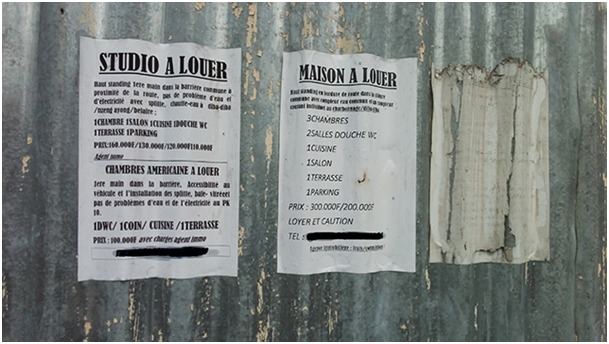 STUDIO A LOUER
Haut standing 1ere main dans la barrière commune à
proximité de la route, pas de problème d'eau et
d'électricité avec splitte, chauffe-eau à diba-diba
/nzeng ayong/belaire ;
1CHAMBRE 1SALON 1CUISINE 1DOUCHE WC
1TERRASSE 1PARKING
PRIX:160.000F/130.000F/120.000F110.000F
Agent immo
CHAMBRES AMERICAINE A LOUER
1ere main dans la barrière, Accessibilité au
véhicule et l'installation des splitte, baie- vitreet
pas de problèmes d'eau et de l'électricité au PK
10.
1DWC/ 1COIN/ CUISINE /1TERRASSE
PRIX : 100.000F avec charges agent immo
MAISON A LOUER
Haut standing en bordure de route dans la
commune avec compteur eau commun
courant individuel au
3CHAMBRES
2SALLES DOUCHE WC
1CUISINE
1SALON
1TERRASSE
1PARKING
PRIX : 300.000F/200.000F
LOYER ET CAUTION
TEL :
Agence immobiliere :